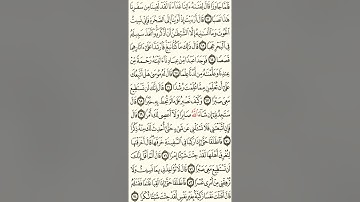 فَلَمَّا جَاوَزَا قَالَ لِفَتَىٰهُ ءَاتِنَا غَدَآءَنَا لَقَدْ لَقِينَا مِن سَفَرِنَا
هَٰذَا نَصَبًا ٦٢ قَالَ أَرَءَيْتَ إِذْ أَوَيْنَآ إِلَى ٱلصَّخْرَةِ فَإِنِّى نَسِيتُ
ٱلْحُوتَ وَمَآ أَنسَىٰنِيهُ إِلَّا ٱلشَّيْطَٰنُ أَنْ أَذْكُرَهُۥ وَٱتَّخَذَ سَبِيلَهُۥ
فِى ٱلْبَحْرِ عَجَبًا ٦٣ قَالَ ذَٰلِكَ مَا كُنَّا نَبْغِ فَٱرْتَدَّا عَلَىٰٓ ءَاثَارِهِمَا
قَصَصًا ٦٤ فَوَجَدَا عَبْدًا مِّنْ عِبَادِنَآ ءَاتَيْنَٰهُ رَحْمَةً مِّنْ
عِندِنَا وَعَلَّمْنَٰهُ مِن لَّدُنَّا عِلْمًا ٦٥ قَالَ لَهُۥ مُوسَىٰ هَلْ أَتَّبِعُكَ
عَلَىٰٓ أَن تُعَلِّمَنِ مِمَّا عُلِّمْتَ رُشْدًا ٦٦ قَالَ إِنَّكَ لَن تَسْتَطِيعَ
مَعِىَ صَبْرًا ٦٧ وَكَيْفَ تَصْبِرُ عَلَىٰ مَا لَمْ تُحِطْ بِهِۦ خُبْرًا ٦٨ قَالَ
سَتَجِدُنِىٓ إِن شَآءَ ٱللَّهُ صَابِرًا وَلَآ أَعْصِى لَكَ أَمْرًا ٦٩ قَالَ
فَإِنِ ٱتَّبَعْتَنِى فَلَا تَسْـَٔلْنِى عَن شَىْءٍ حَتَّىٰٓ أُحْدِثَ لَكَ مِنْهُ ذِكْرًا
٧٠ فَٱنطَلَقَا حَتَّىٰٓ إِذَا رَكِبَا فِى ٱلسَّفِينَةِ خَرَقَهَا قَالَ أَخَرَقْتَهَا
لِتُغْرِقَ أَهْلَهَا لَقَدْ جِئْتَ شَيْـًٔا إِمْرًا ٧١ قَالَ أَلَمْ أَقُلْ إِنَّكَ
لَن تَسْتَطِيعَ مَعِىَ صَبْرًا ٧٢ قَالَ لَا تُؤَاخِذْنِى بِمَا نَسِيتُ وَلَا
تُرْهِقْنِى مِنْ أَمْرِى عُسْرًا ٧٣ فَٱنطَلَقَا حَتَّىٰٓ إِذَا لَقِيَا غُلَٰمًا فَقَتَلَهُۥ
قَالَ أَقَتَلْتَ نَفْسًا زَكِيَّةًۢ بِغَيْرِ نَفْسٍ لَّقَدْ جِئْتَ شَيْـًٔا نُّكْرًا ٧٤